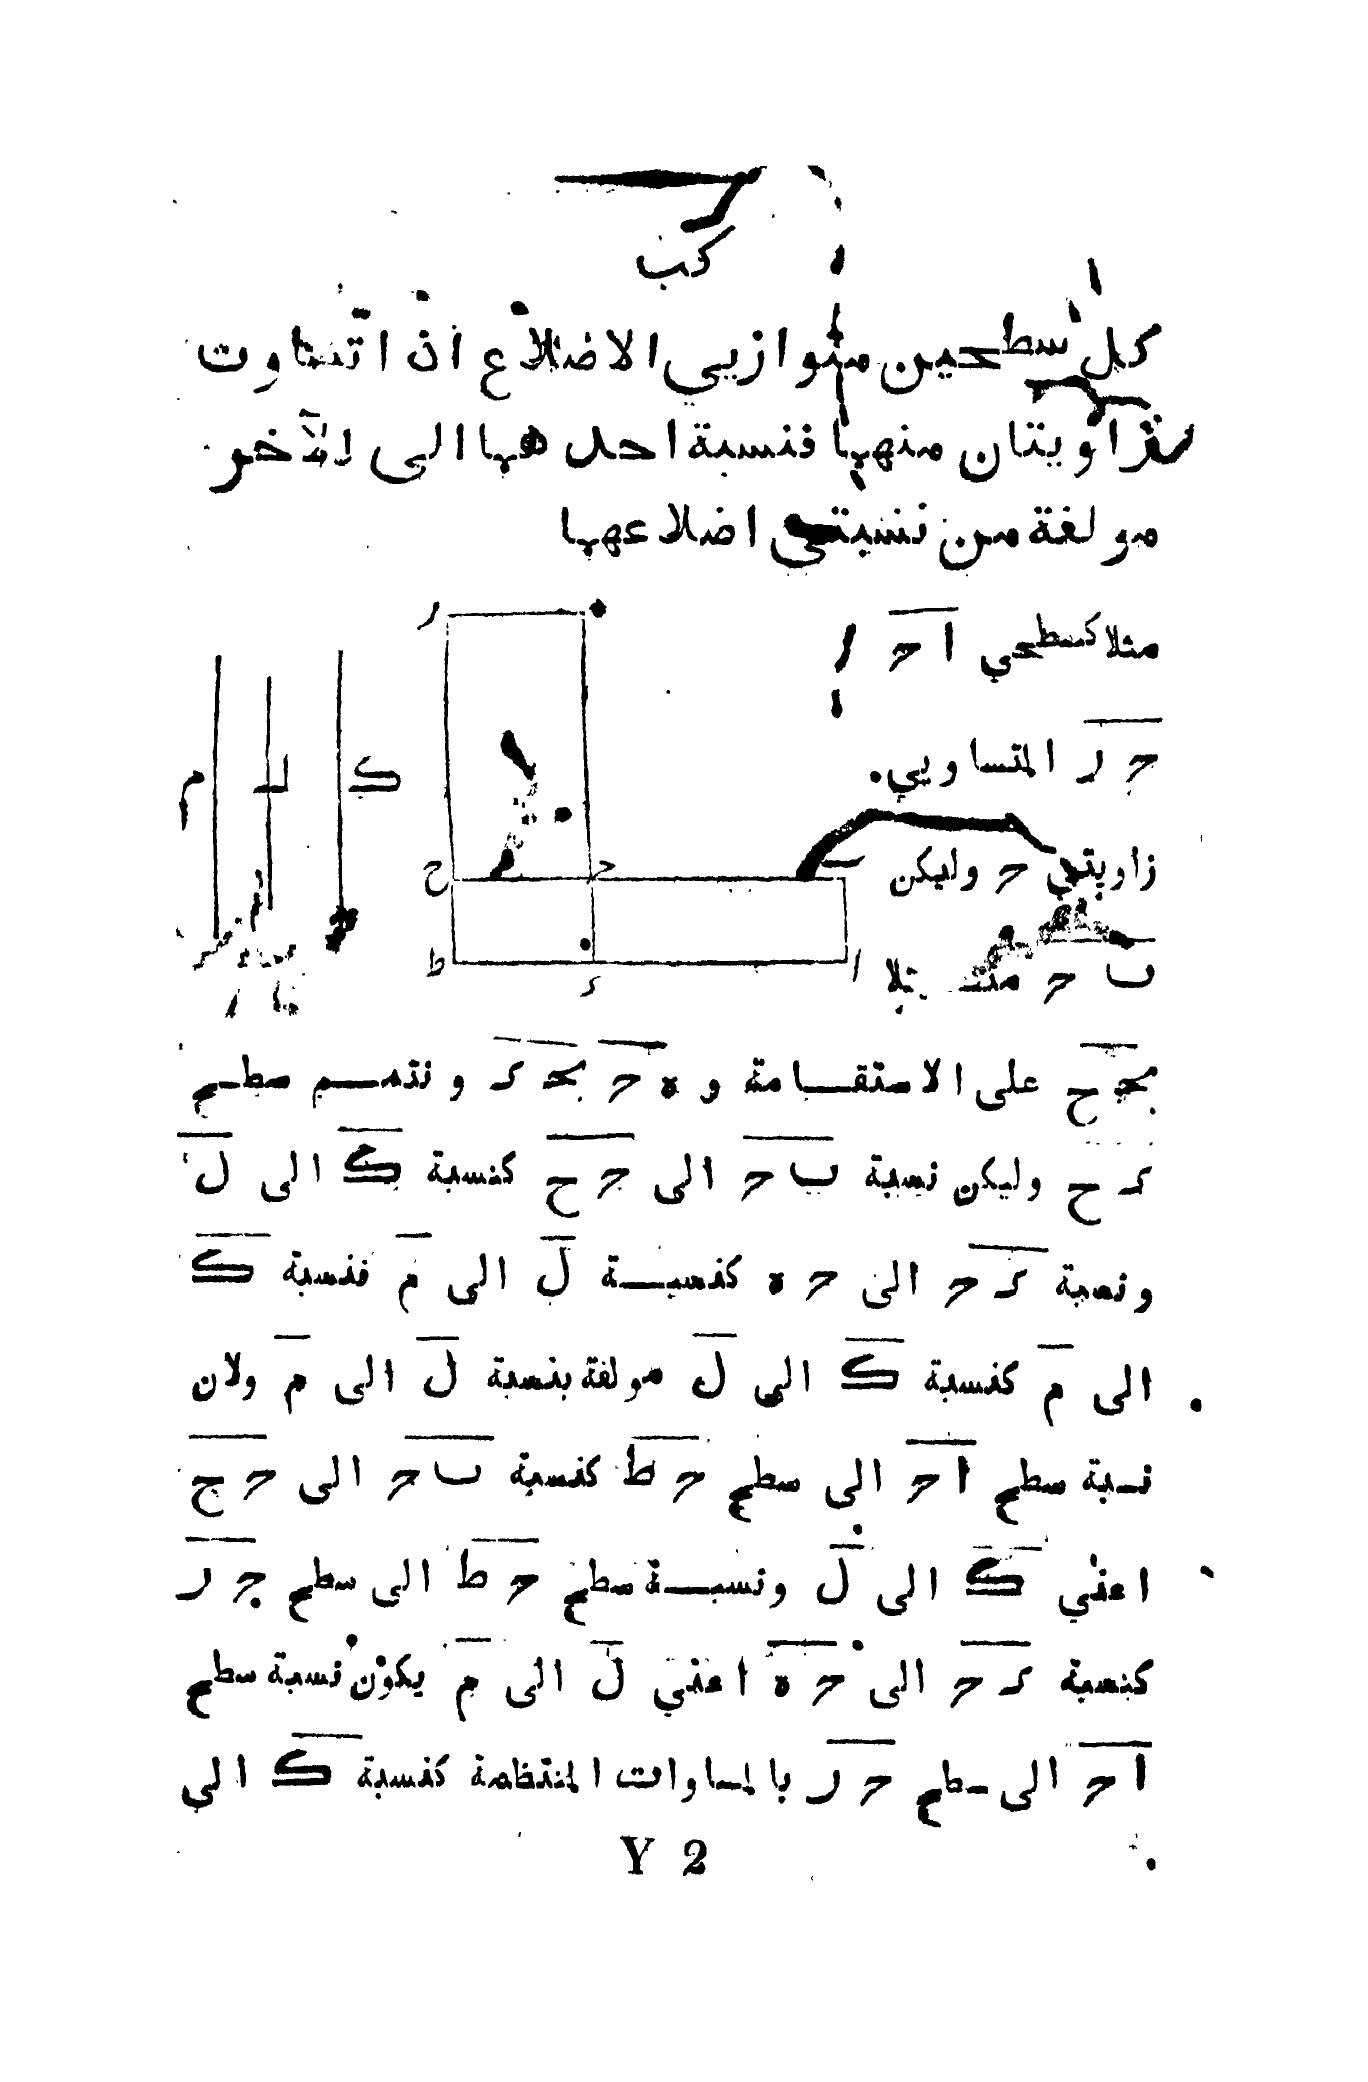 كب
كل سطحين متوازيي الاضلاع ان اتساوت
زاويتان منهما فنسبة احدهما الى الآخر
مولفة من نسبتي اضلاعهما
مثلا كسطحي ا ح
ح ر المتساويي
زاويتي ح وليكن
ب ح
ر
ح
ح
ط
ء
ا
ك
ل
م
ح على الاستقامة و ه ح ونتمم سطح
ح وليكن نسبة ب ح الى ح ح كنسبة ك الى ل
ونسبة ء ح الى ح ه كنسبة ل الى م فنسبة ك
الى م كنسبة ك الى ل مولفة بنسبة ل الى م ولان
نسبة سطح ا ح الى سطح ح ط كنسبة ب ح الى ح ج
اعني ك الى ل ونسبة سطح ح ط الى سطح ج ر
كنسبة ء ح الى ح ه اعني ل الى م يكون نسبة سطح
ا ح الى سطح ح ر بالمساوات المنتظمة كنسبة ك الي
Y 2